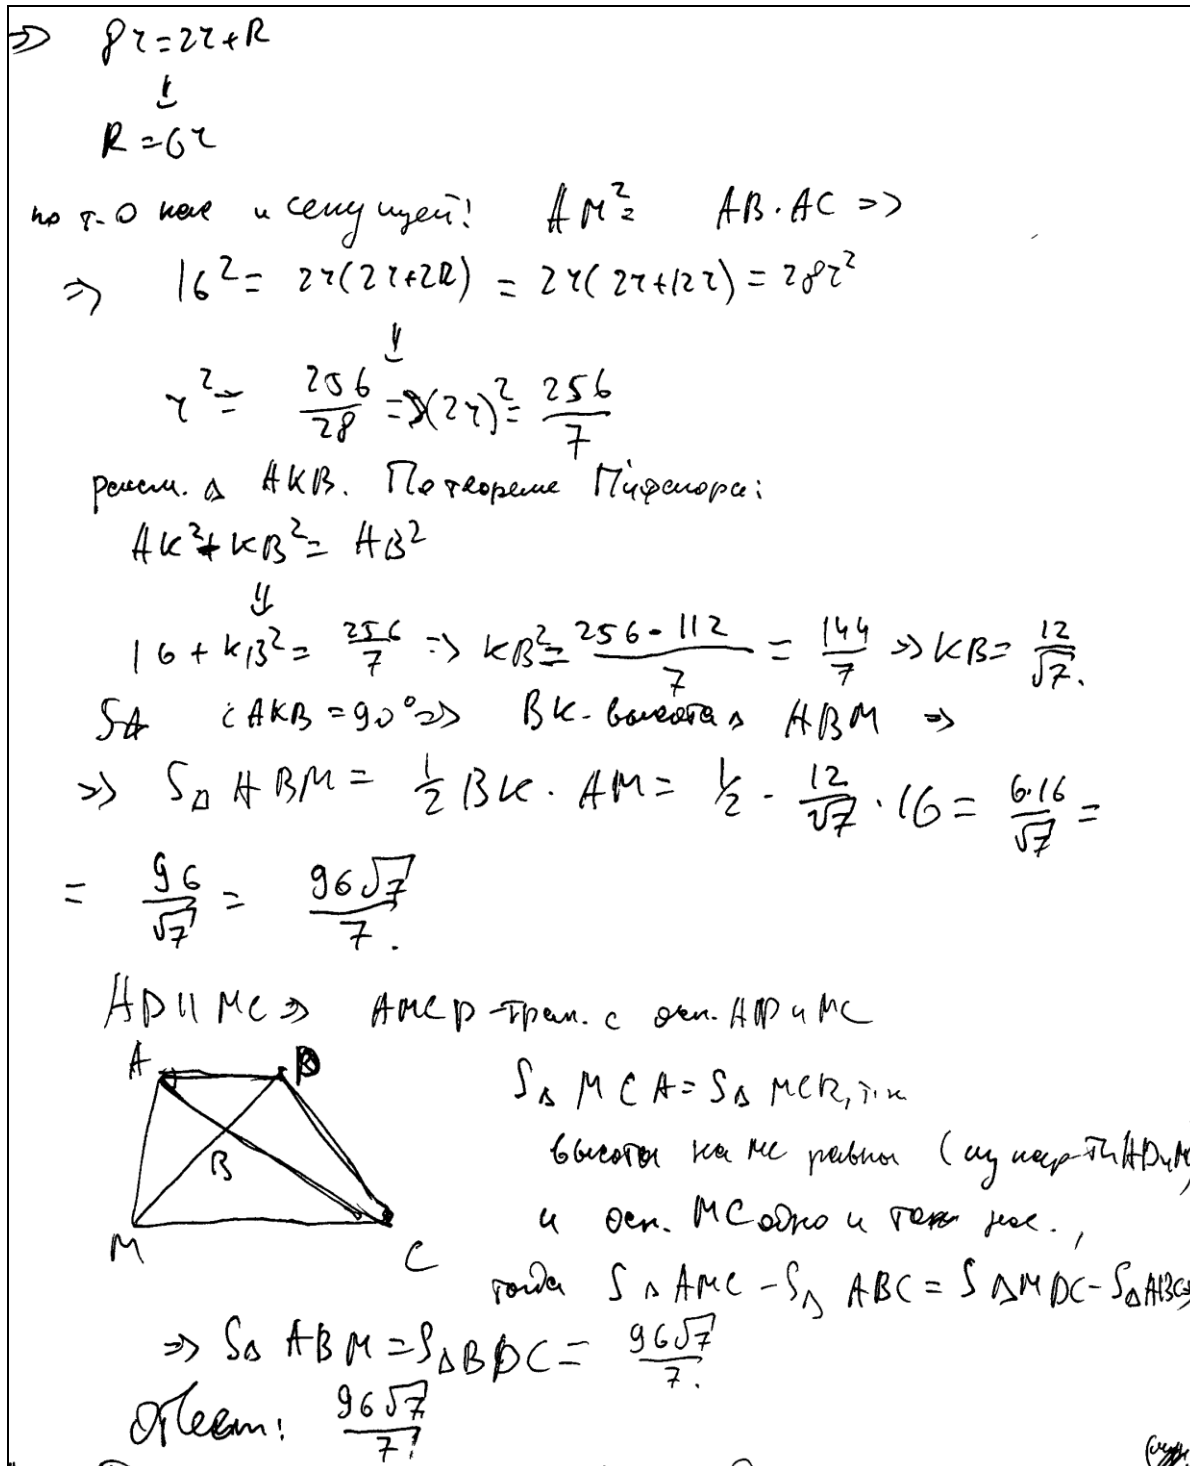 => 8r=2r+R
⇓
R=6r
по т-о кас и секущей: AM²= AB·AC =>
=> 16²= 2r(2r+2R) = 2r(2r+12r)=28r²
⇓
r²= 256/28 =>(2r)²= 256/7
рассм. Δ AKB. По теореме Пифагора:
AK²+KB²= AB²
⇓
16+KB²= 256/7 => KB²= (256-112)/7 = 144/7 => KB= 12/√7.
∠AKB=90°=> BK-высота Δ ABM =>
=> SΔ ABM= 1/2 BK · AM= 1/2 · 12/√7 · 16 = 6·16/√7 =
= 96/√7 = 96√7/7.
AD||MC => AMCD-трап. с осн. AD и MC
A D
B
M C
SΔ MCA=SΔ MCD, т.к
высоты на MC равны (из пар-ти AD и M
и осн. MC одно и тоже.,
тогда SΔ AMC-SΔ ABC=SΔ MDC-SΔ
=> SΔ ABM=SΔ BDC= 96√7/7.
Ответ: 96√7/7.